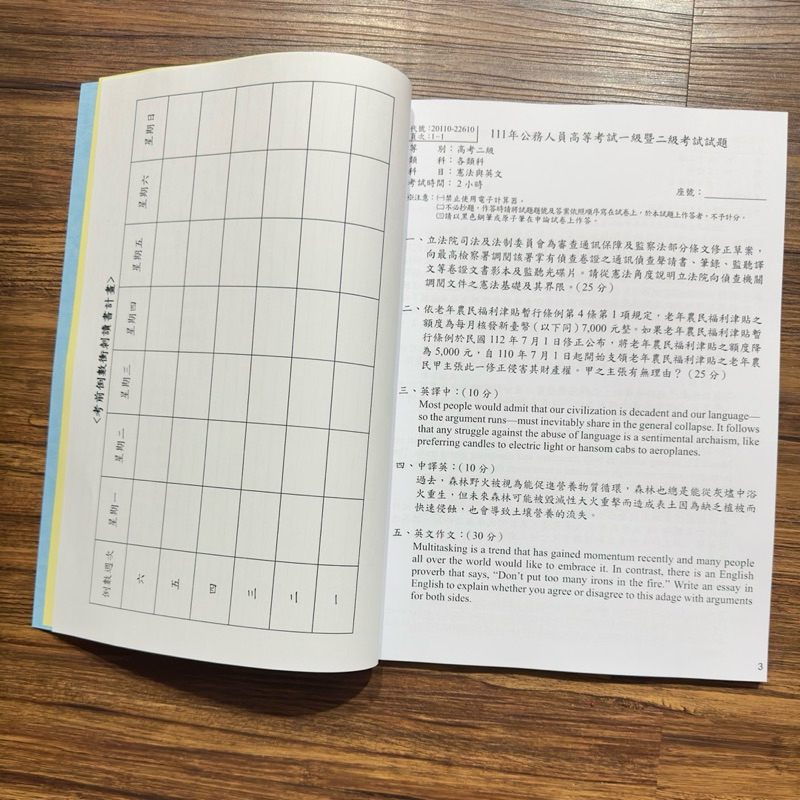 <考前倒數衝刺讀書計畫>
倒數週次 星期一 星期二 星期三 星期四 星期五 星期六 星期日
六
五
四
三
二
一
代號：20110-22610
頁次：1-1
111年公務人員高等考試一級暨二級考試試題
等 別：高考二級
類 科：各類科
科 目：憲法與英文
考試時間：2 小時
座號：
※注意：㈠禁止使用電子計算器。
㈡不必抄題，作答時請將試題題號及答案依照順序寫在試卷上，於本試題上作答者，不予計分。
㈢請以黑色鋼筆或原子筆在申論試卷上作答。
一、立法院司法及法制委員會為審查通訊保障及監察法部分條文修正草案，
向最高檢察署調閱該署掌有偵查卷證之通訊偵查聲請書、筆錄、監聽譯
文等卷證文書影本及監聽光碟片。請從憲法角度說明立法院向偵查機關
調閱文件之憲法基礎及其界限。（25 分）
二、依老年農民福利津貼暫行條例第 4 條第 1 項規定，老年農民福利津貼之
額度為每月核發新臺幣（以下同）7,000 元整。如果老年農民福利津貼暫
行條例於民國 112 年 7 月 1 日修正公布，將老年農民福利津貼之額度降
為 5,000 元，自 110 年 7 月 1 日起開始支領老年農民福利津貼之老年農
民甲主張此一修正侵害其財產權。甲之主張有無理由？（25 分）
三、英譯中：（10 分）
Most people would admit that our civilization is decadent and our language—
so the argument runs—must inevitably share in the general collapse. It follows
that any struggle against the abuse of language is a sentimental archaism, like
preferring candles to electric light or hansom cabs to aeroplanes.
四、中譯英：（10 分）
過去，森林野火被視為能促進營養物質循環，森林也總是能從灰燼中浴
火重生，但未來森林可能被毀滅性大火重擊而造成表土因為缺乏植被而
快速侵蝕，也會導致土壤營養的流失。
五、英文作文：（30 分）
Multitasking is a trend that has gained momentum recently and many people
all over the world would like to embrace it. In contrast, there is an English
proverb that says, “Don’t put too many irons in the fire.” Write an essay in
English to explain whether you agree or disagree to this adage with arguments
for both sides.
3